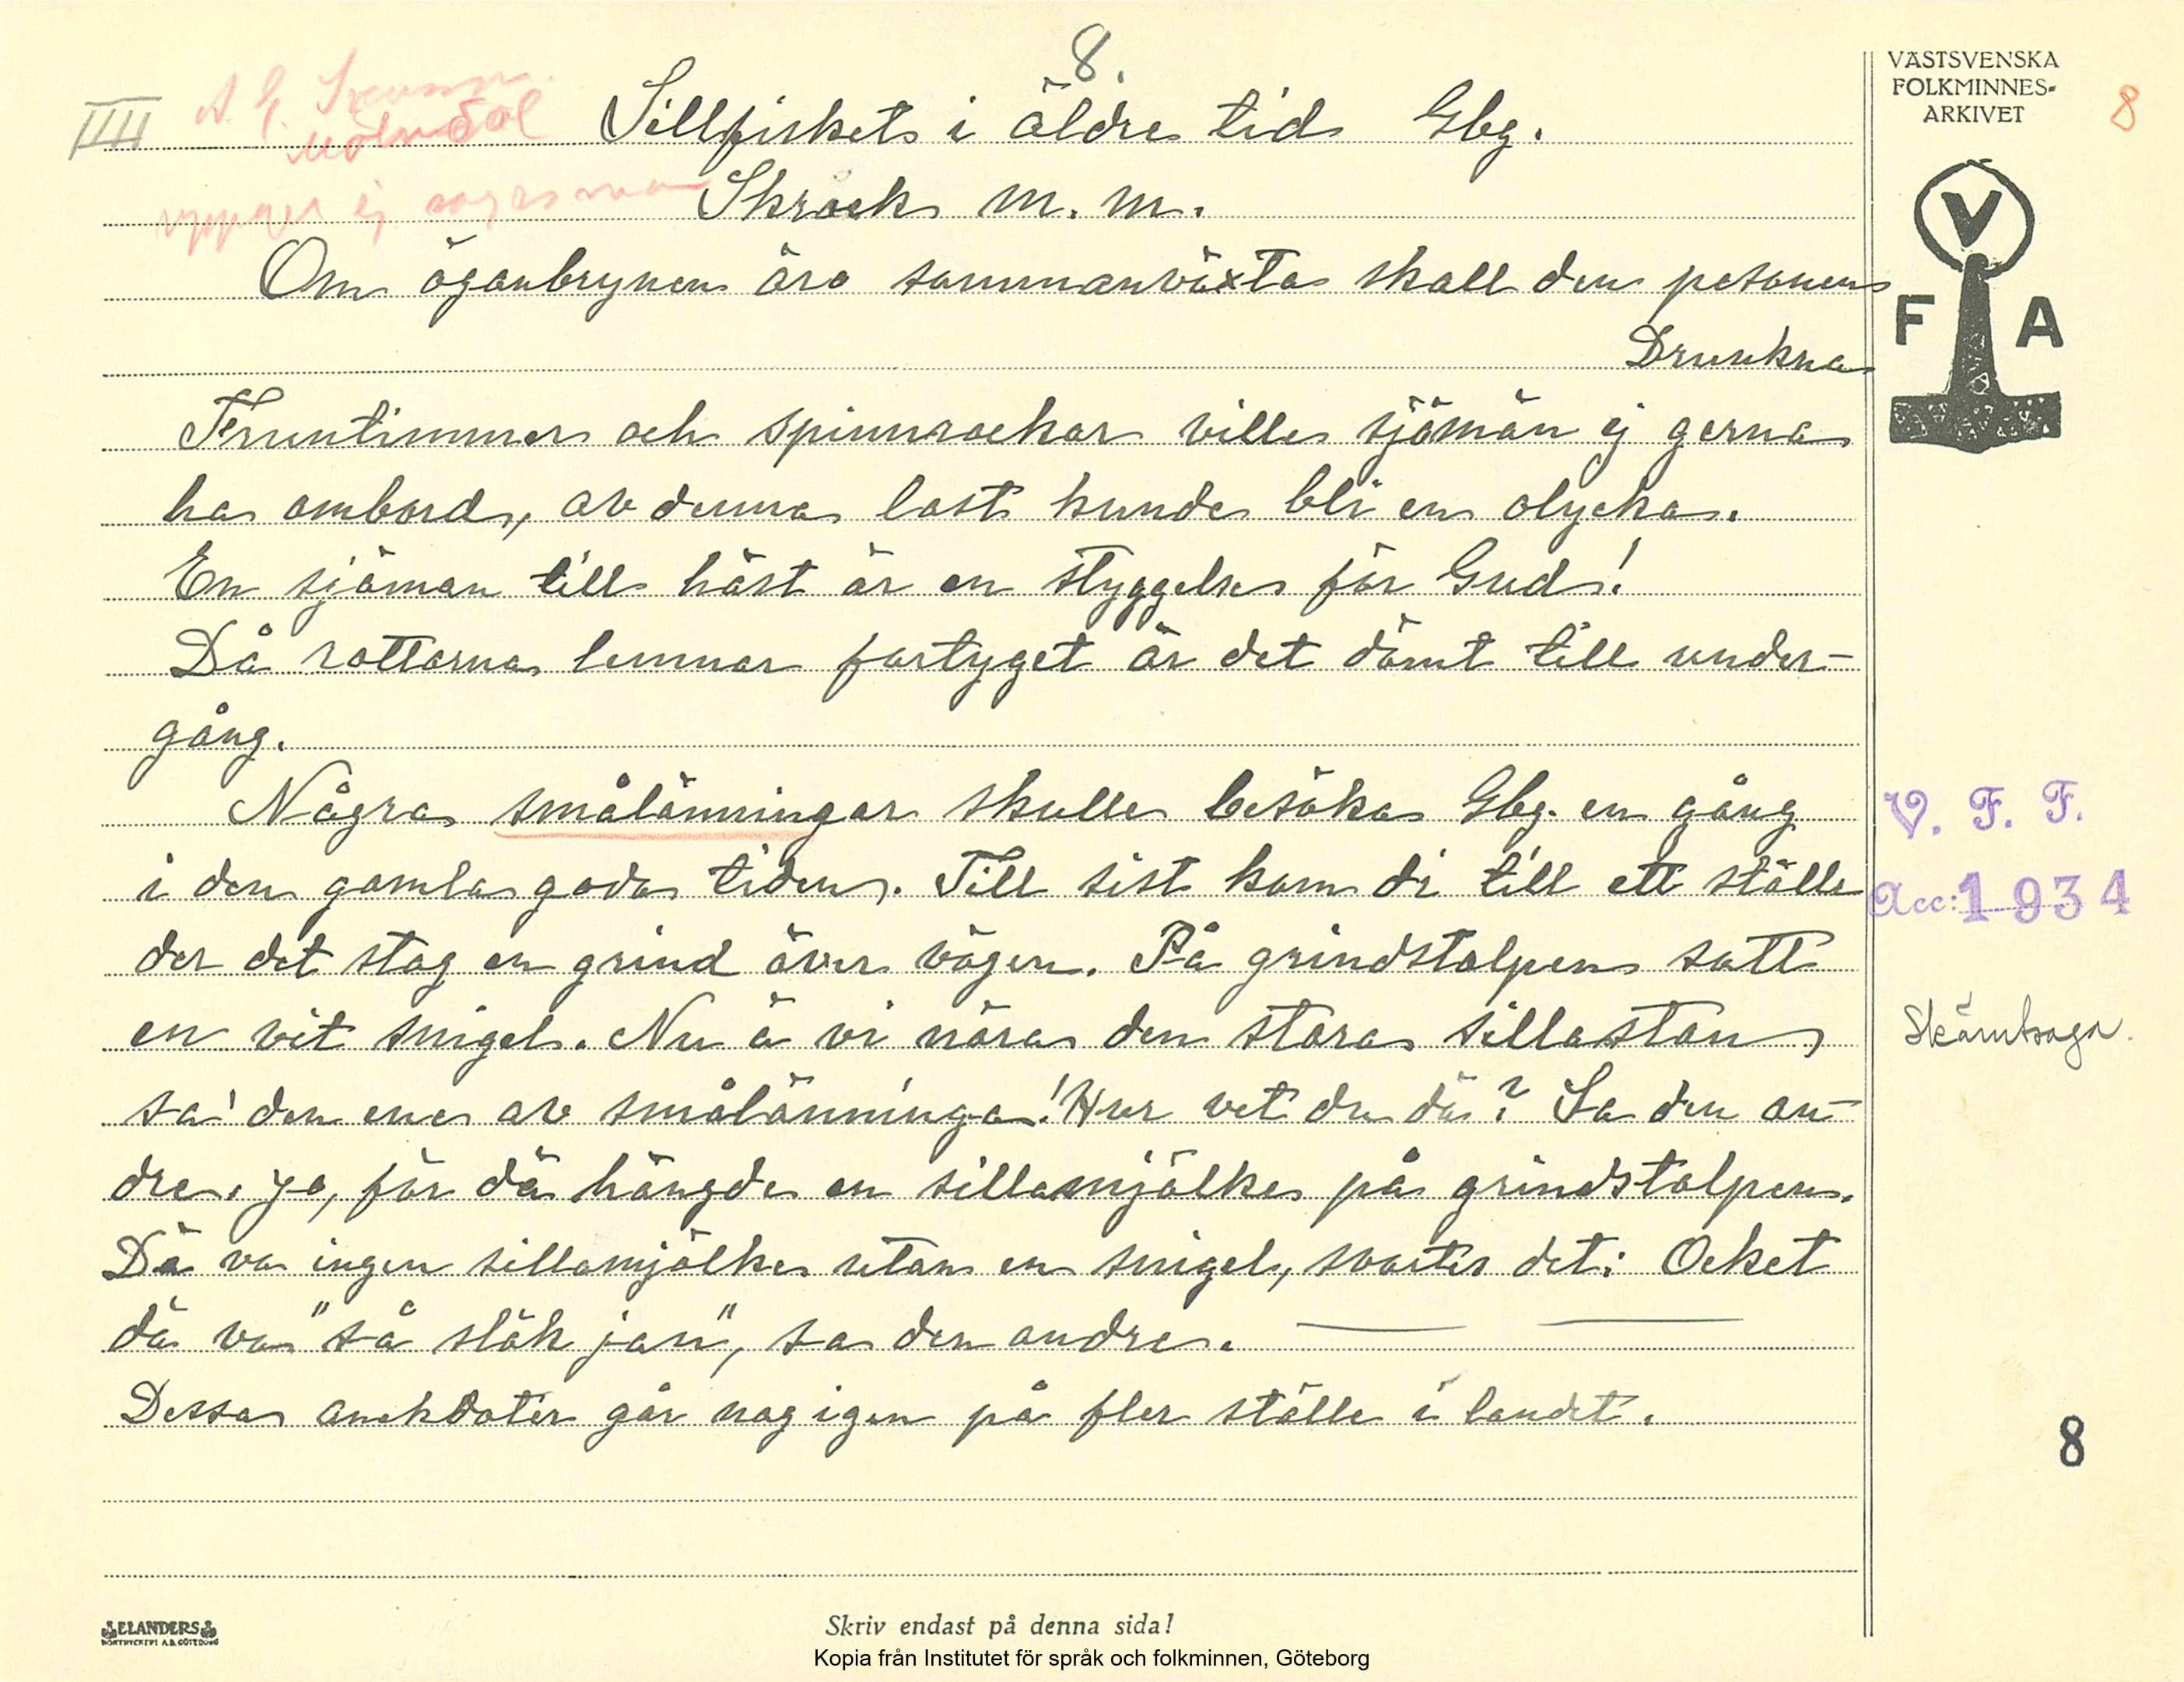 8.
IIII
A. G.
Mölndal
Sillfisket i äldre tid Gbg.
uppger ej sagesman
Skrock m. m.
Om ögonbrynen äro sammanväxta skall den pesonen
Drunkna
Fruntimmer och spinnrockar ville sjömän ej gerna
ha ombord, av denna last kunde bli en olycka.
En sjöman till häst är en styggelse för Gud!
Då rottorna lemnar fartyget är det dömt till under-
gång.
Några smålänningar skulle besöka Gbg. en gång
i den gamla goda tiden. Till sist kom di till ett ställe
der det stog en grind över vägen. På grindstolpen satt
en vit snigel. Nu ä vi nära den stora sillastan,
sa' den ene av smålänninga! Hur vet du dä? Sa den an-
dre. Jo, för dä hängde en sillamjölke på grindstolpen.
Dä va ingen sillamjölke utan en snigel, svartes det: Ocket
dä va "så slök jan", sa den andre.
Dessa anekdoter går nog igen på fler ställe i landet.
VÄSTSVENSKA
FOLKMINNES-
ARKIVET
8
V
F A
V. F. F.
Acc: 1934
Skämtsaga.
8
ELANDERS
BOKTRYCKERI A.B. GÖTEBORG
Skriv endast på denna sida!
Kopia från Institutet för språk och folkminnen, Göteborg